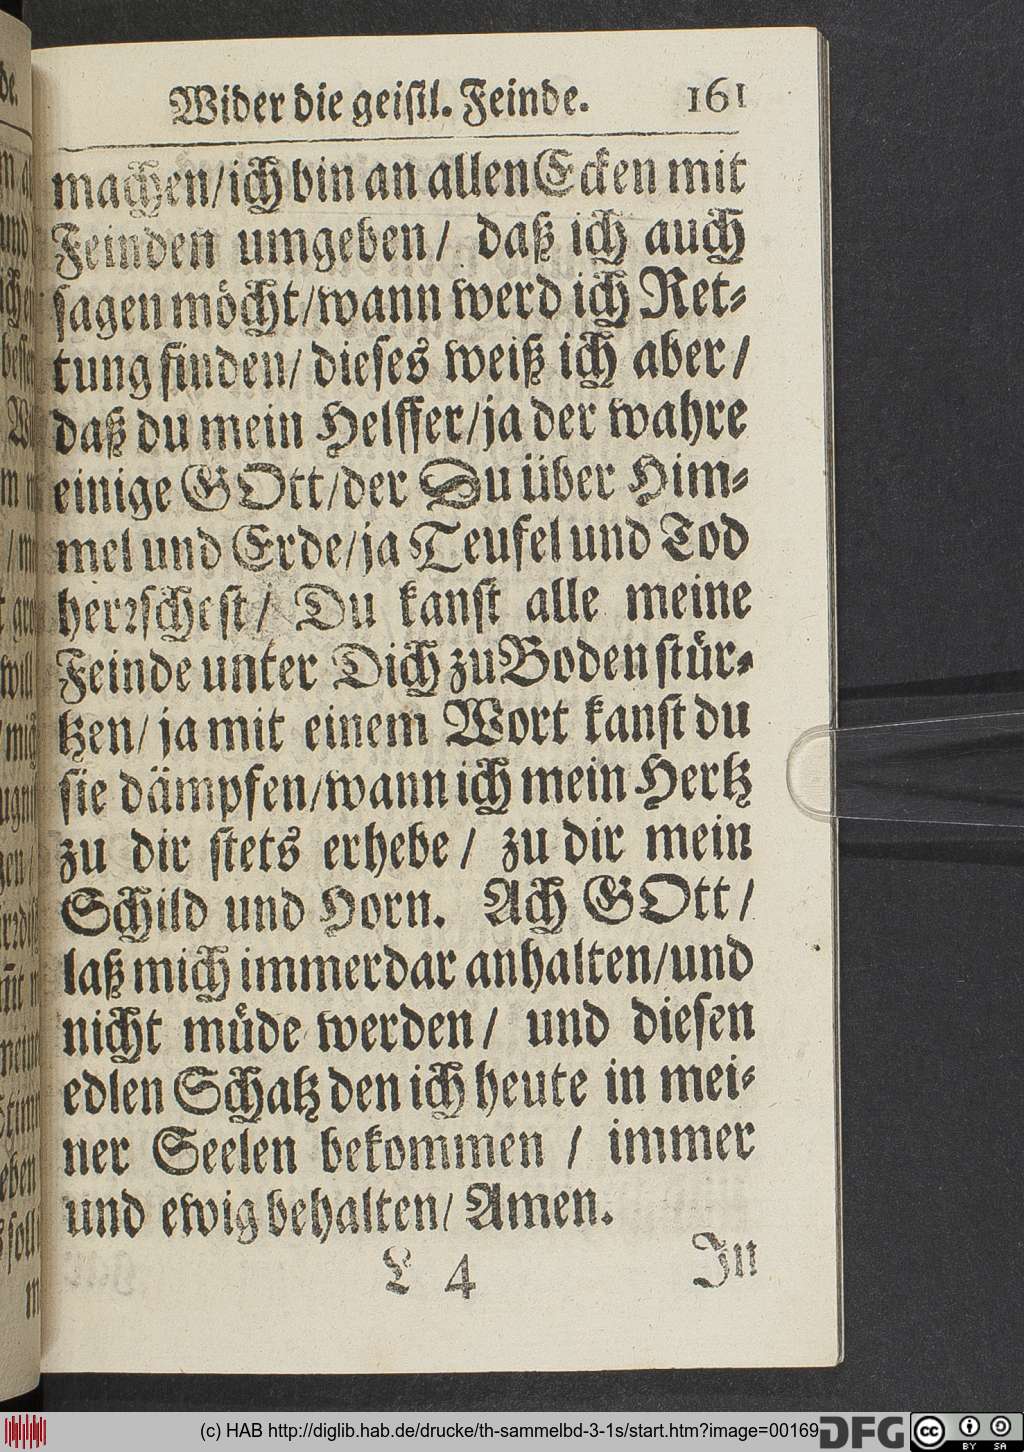 Wider die geistl. Feinde. 161
machen/ich bin an allen Ecken mit
Feinden umgeben/ daß ich auch
sagen möcht/wann werd ich Ret-
tung finden/ dieses weiß ich aber/
daß du mein Helffer/ja der wahre
einige GOtt/der Du über Him-
mel und Erde/ja Teufel und Tod
herrschest/ Du kanst alle meine
Feinde unter Dich zu Boden stür-
tzen/ ja mit einem Wort kanst du
sie dämpfen/wann ich mein Hertz
zu dir stets erhebe/ zu dir mein
Schild und Horn. Ach GOtt/
laß mich immerdar anhalten/und
nicht müde werden/ und diesen
edlen Schatz den ich heute in mei-
ner Seelen bekommen / immer
und ewig behalten/ Amen.
L 4 In
(c) HAB http://diglib.hab.de/drucke/th-sammelbd-3-1s/start.htm?image=00169
DFG
cc BY SA